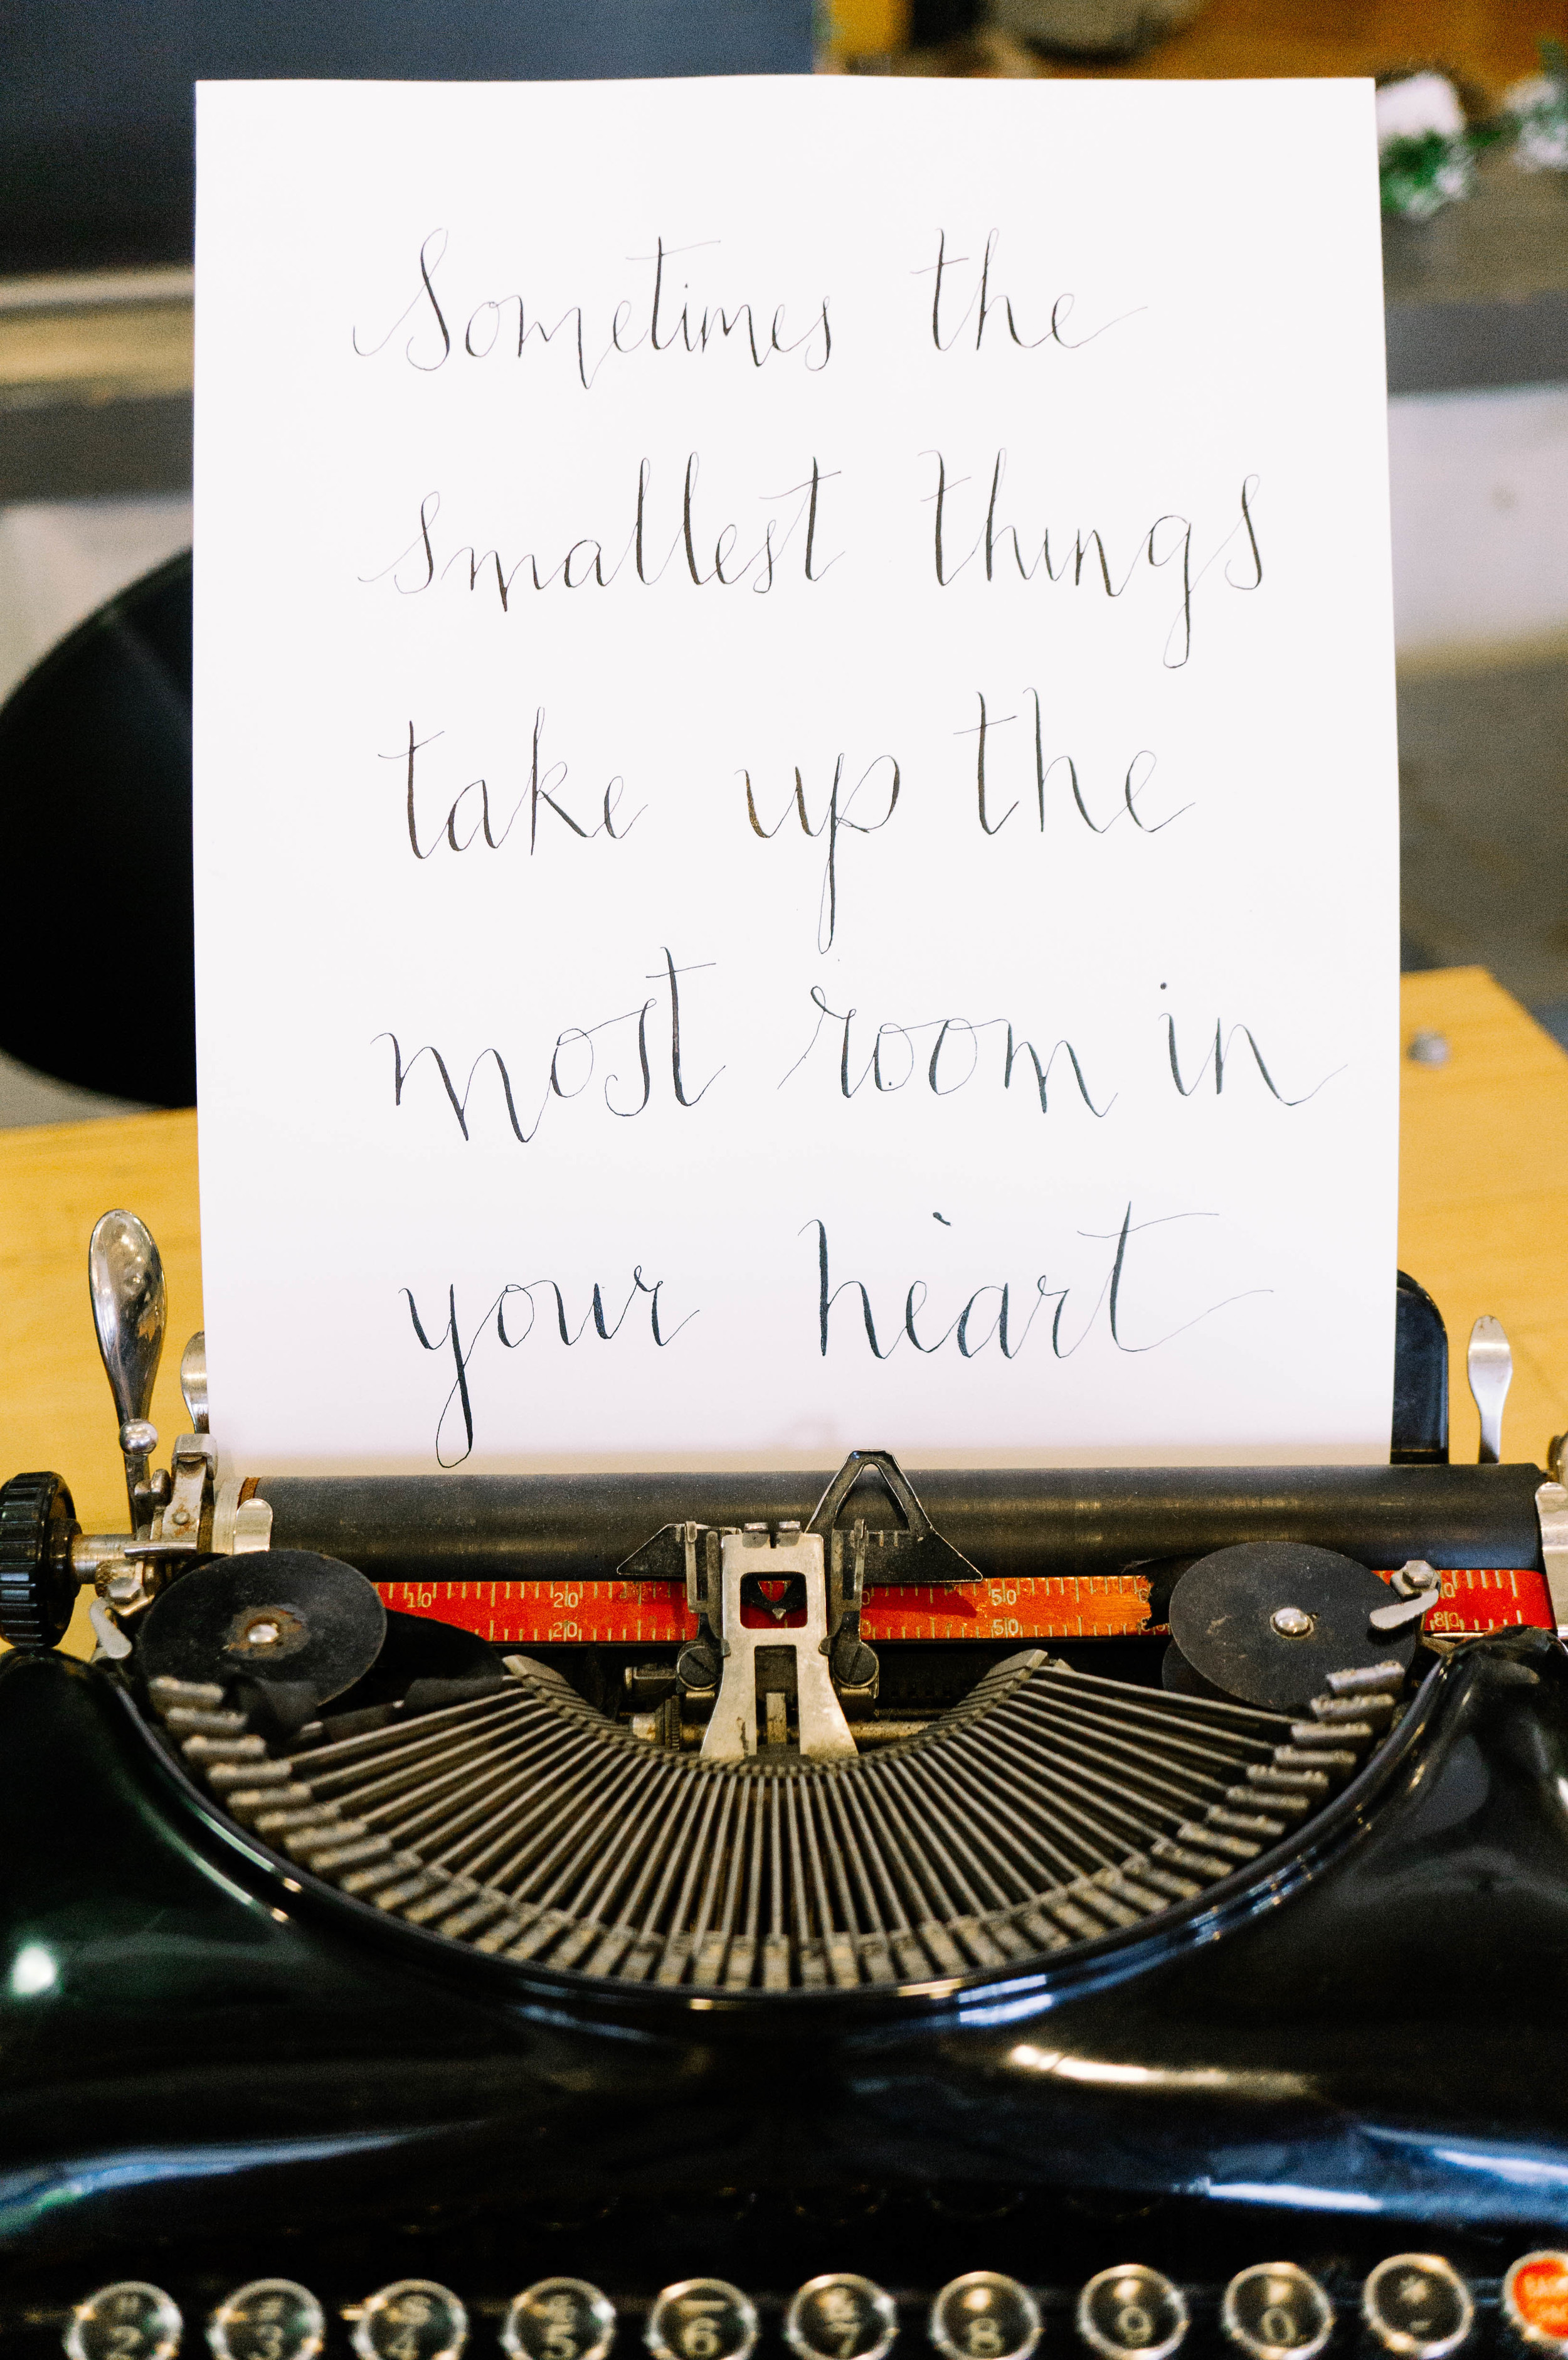 Sometimes the
smallest things
take up the
most room in
your heart
10 20 50
20 50 80
2 3 4 5 6 7 8 9 0 -